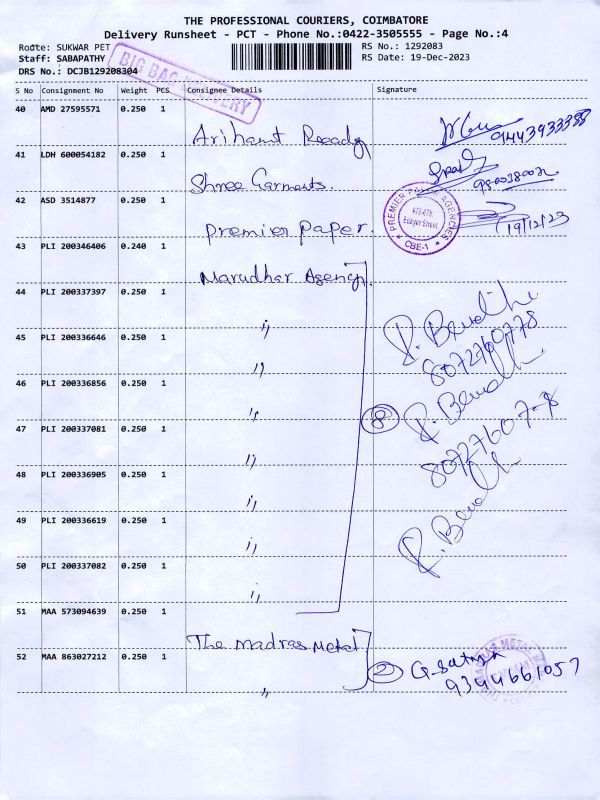 THE PROFESSIONAL COURIERS, COIMBATORE
Delivery Runsheet - PCT - Phone No.:0422-3505555 - Page No.:4
Route: SUKWAR PET
RS No.: 1292083
Staff: SABAPATHY
RS Date: 19-Dec-2023
DRS No.: DCJB129208304
BIG BAG DELIVERY
S No Consignment No Weight PCS Consignee Details Signature
40 AMD 27595571 0.250 1
Arihant Ready
9443933338
41 LDH 600054182 0.250 1
Shree Garments.
42 ASD 3514877 0.250 1
Premier Paper.
PREMIER PAPER AGENCIES
Edayar Street
CBE-1
19/12/23
43 PLI 200346406 0.240 1
Marudhar Agency
44 PLI 200337397 0.250 1
"
45 PLI 200336646 0.250 1
"
8072760778
46 PLI 200336856 0.250 1
"
8
47 PLI 200337081 0.250 1
"
48 PLI 200336905 0.250 1
"
49 PLI 200336619 0.250 1
"
50 PLI 200337082 0.250 1
"
51 MAA 573094639 0.250 1
The Madras Metal
52 MAA 863027212 0.250 1
2 G. Sathya
9344661057
"